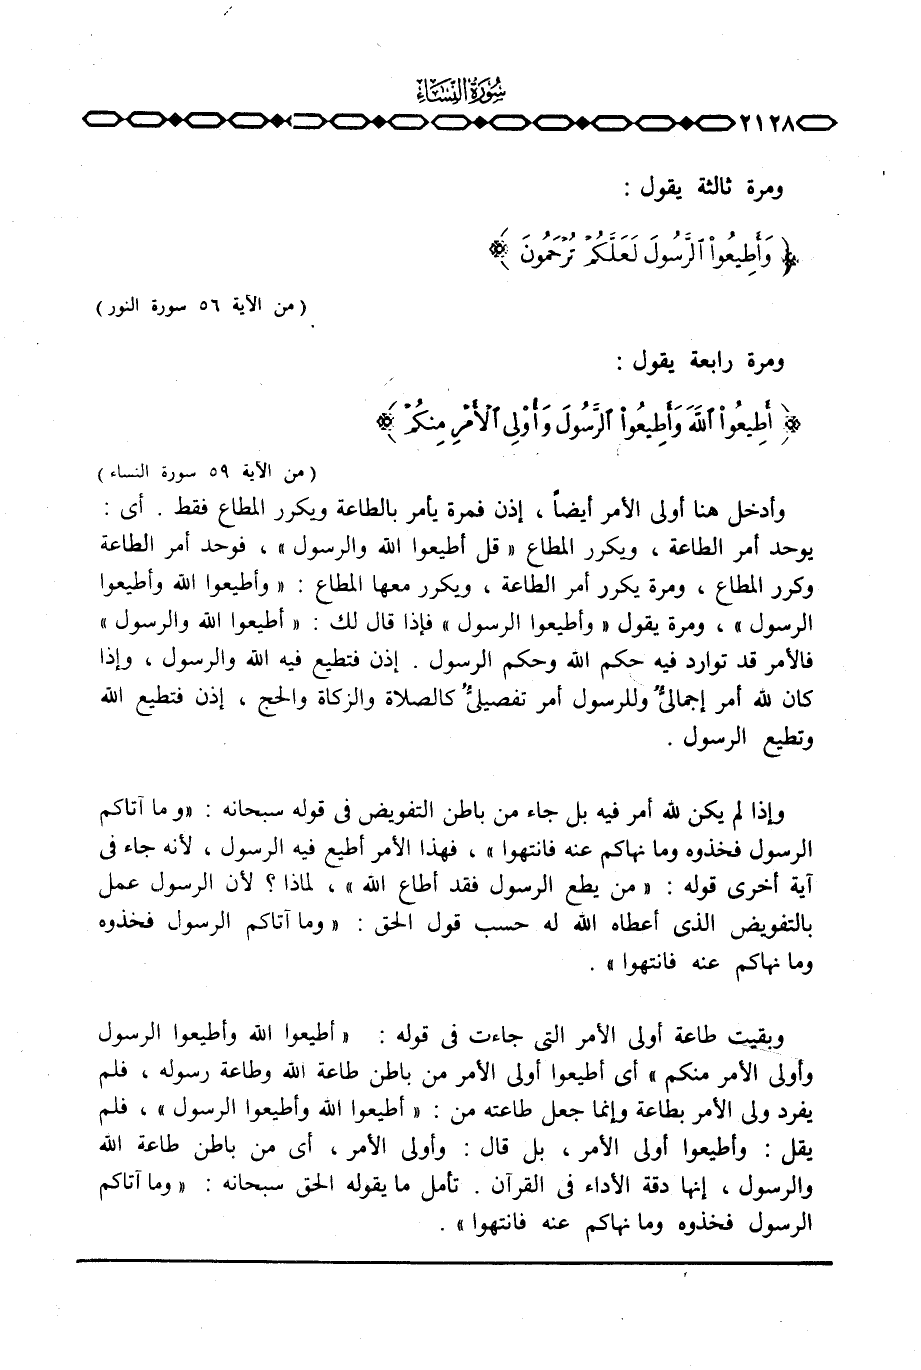 سُورَةُ النِّسَاءِ
٢١٢٨
ومرة ثالثة يقول :
﴿ وَأَطِيعُوا۟ ٱلرَّسُولَ لَعَلَّكُمْ تُرْحَمُونَ ﴾
( من الآية ٥٦ سورة النور )
ومرة رابعة يقول :
﴿ أَطِيعُوا۟ ٱللَّهَ وَأَطِيعُوا۟ ٱلرَّسُولَ وَأُو۟لِى ٱلْأَمْرِ مِنكُمْ ﴾
( من الآية ٥٩ سورة النساء )
وأدخل هنا أولى الأمر أيضاً ، إذن فمرة يأمر بالطاعة ويكرر المطاع فقط . أى :
يوحد أمر الطاعة ، ويكرر المطاع « قل أطيعوا الله والرسول » ، فوحد أمر الطاعة
وكرر المطاع ، ومرة يكرر أمر الطاعة ، ويكرر معها المطاع : « وأطيعوا الله وأطيعوا
الرسول » ، ومرة يقول « وأطيعوا الرسول » فإذا قال لك : « أطيعوا الله والرسول »
فالأمر قد توارد فيه حكم الله وحكم الرسول . إذن فتطيع فيه الله والرسول ، وإذا
كان لله أمر إجمالىٌّ وللرسول أمر تفصيلىٌّ كالصلاة والزكاة والحج ، إذن فتطيع الله
وتطيع الرسول .
وإذا لم يكن لله أمر فيه بل جاء من باطن التفويض فى قوله سبحانه : « وما آتاكم
الرسول فخذوه وما نهاكم عنه فانتهوا » ، فهذا الأمر أطيع فيه الرسول ، لأنه جاء فى
آية أخرى قوله : « من يطع الرسول فقد أطاع الله » ، لماذا ؟ لأن الرسول عمل
بالتفويض الذى أعطاه الله له حسب قول الحق : « وما آتاكم الرسول فخذوه
وما نهاكم عنه فانتهوا » .
وبقيت طاعة أولى الأمر التى جاءت فى قوله : « أطيعوا الله وأطيعوا الرسول
وأولى الأمر منكم » أى أطيعوا أولى الأمر من باطن طاعة الله وطاعة رسوله ، فلم
يفرد ولى الأمر بطاعة وإنما جعل طاعته من : « أطيعوا الله وأطيعوا الرسول » ، فلم
يقل : وأطيعوا أولى الأمر ، بل قال : وأولى الأمر ، أى من باطن طاعة الله
والرسول ، إنها دقة الأداء فى القرآن . تأمل ما يقوله الحق سبحانه : « وما آتاكم
الرسول فخذوه وما نهاكم عنه فانتهوا » .